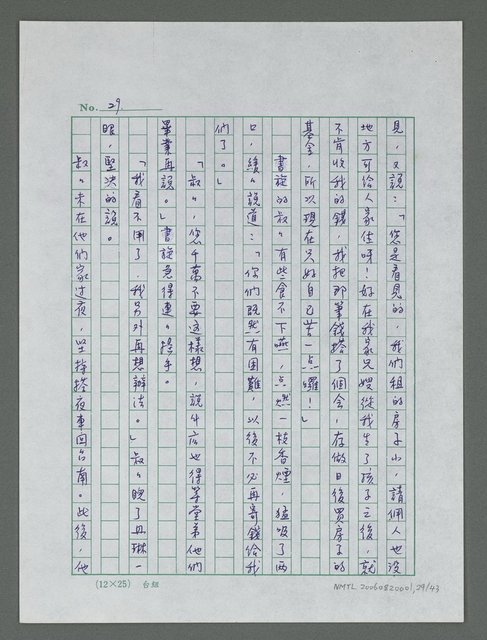 No. 29.
見，又說：「您是看見的，我們租的房子小，請佣人也沒
地方可給人家住呀！好在我家兄嫂從我生了孩子之後，就
不肯收我的錢，我把那筆錢搭了個會，存做日後買房子的
基金，所以現在只好自己苦一点囉！」
書旋的叔〃有些食不下嚥，点燃一枝香煙，猛吸了兩
口，緩〃說道：「你們既然有困難，以後不必再寄錢給我
們了。」
「叔〃，您千萬不要這樣想，說什広也得等堂弟他們
畢業再說。」書旋急得連〃搓手。
「我看不用了，我另外再想辦法。」叔〃睨了丹琳一
眼，堅決的說。
叔〃未在他們家过夜，堅持搭夜車回台南。此後，他
(12×25) 台組
NMTL 20060820001,29/43